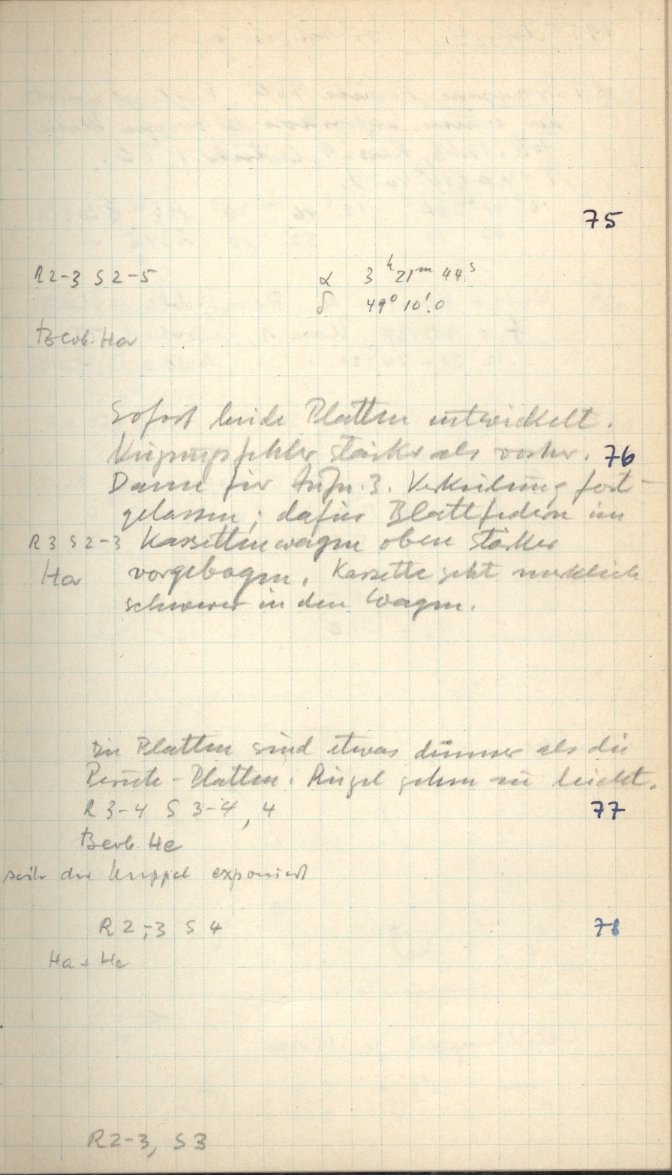 75
R2-3 S2-5 α 3h 21m 44s
δ 49° 10'.0
Beob. Ha
Sofort beide Platten entwickelt.
stärker als vorher. 76
Dann für Aufn. 3. Verkeilung fort-
gelassen; dafür Blattfedern im
R3 S2-3 Kassettenwagen oben stärker
Ha vorgebogen. Kassette geht merklich
schwerer in den Wagen.
Die Platten sind etwas dünner als die
Perutz-Platten. Riegel gehen zu leicht.
R 3-4 S 3-4, 4 77
Beob. He
exponiert
R 2-3 S 4 78
Ha + He
R2-3, S3